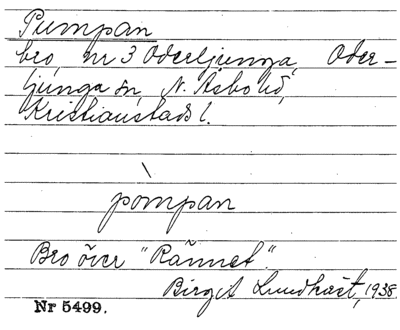 Pumpan
bro, nr 3 Oderljunga, Oder-
ljunga sn, N. Åsbo hd,
Kristianstads l.
pòmpan
Bro över "Rännet".
Birgit Lundkvist, 1938.
Nr 5499.